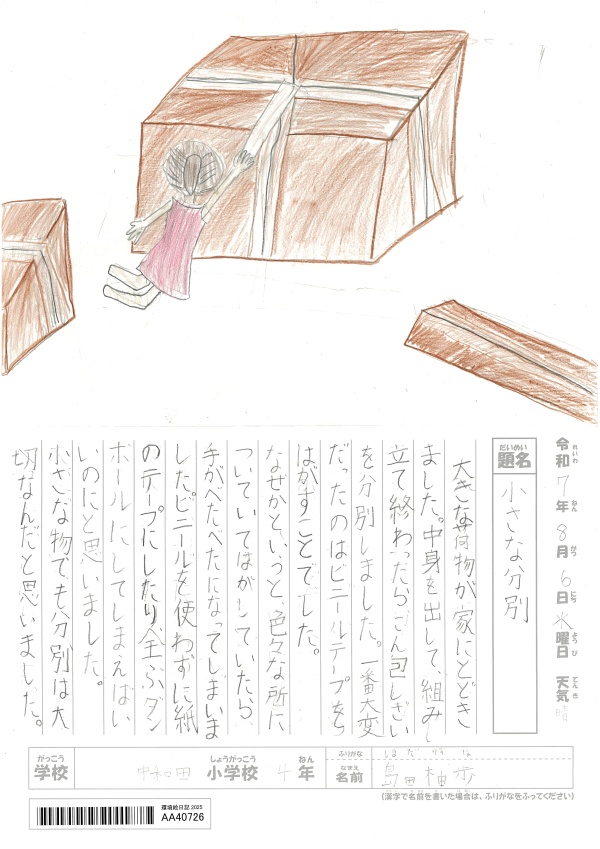 令和7年8月6日水曜日 天気 晴
れいわ ねん がつ にち ようび てんき
だいめい
題名 小さな分別
大きな荷物が家にとどき
ました。中身を出して、組み
立て終わったらこん包しざい
を分別しました。一番大変
だったのはビニールテープをを
はがすことでした。
なぜかというと、色々な所に
ついていてはがしていたら、
手がべたべたになってしまいま
した。ビニールを使わずに紙
のテープにしたり全ぶダン
ボールにしてしまえばい
いのにと思いました。
小さな物でも分別は大
切なんだと思いました。
がっこう しょうがっこう ねん
学校 中和田 小学校 4年
ふりがな しまだ ゆず な
なまえ
名前 島田柚歩
(漢字で名前を書いた場合は、ふりがなをふってください)
環境絵日記 2025
AA40726